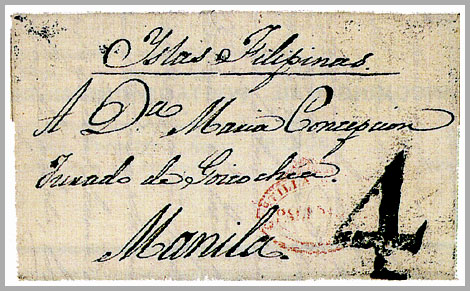 Islas Filipinas.
A D.ña Maria Concepcion
Jurado de Goicochea.
Manila.
4